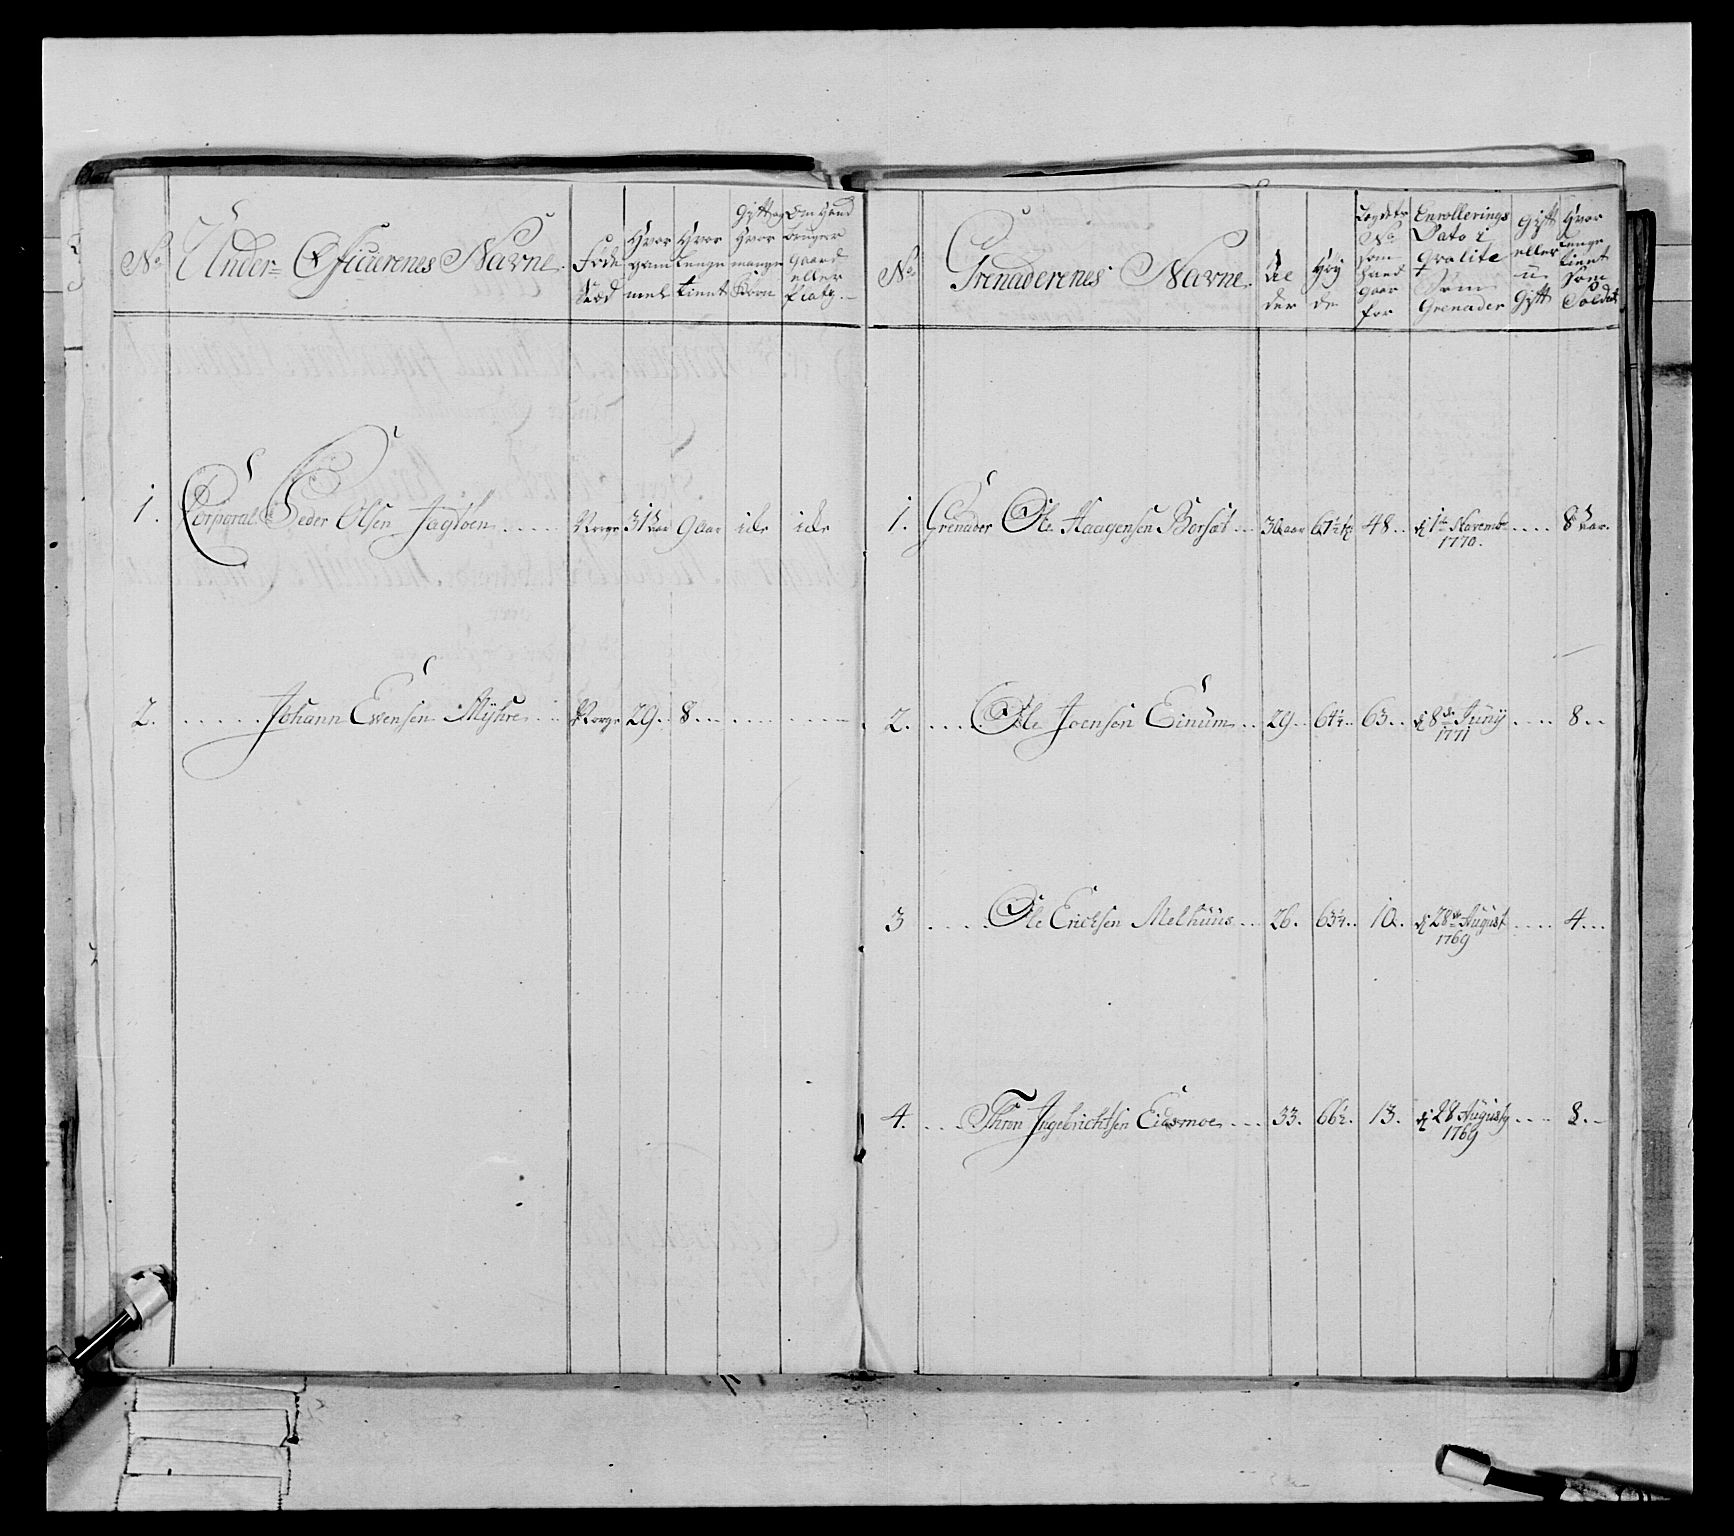 No. Under= Officerenes Navne. Føde Stæd Hvor gammel Hvor lenge tient Gyft og Hvor mange Børn Om Hand bruger gaard eller Platz.
1. Corporal Peder Olsen Jagtøen ..... Norge 31 aar 9 aar icke icke
2. ..... Johann Ewensen Myhre ... Norge 29.. 8...
No. Grenaderenes Navne. Al der Høy de Legdets No. som hand gaar for Enrollerings Dato i Qvalite som Grenader Gyft eller u Gyft Hvor lenge tient som Soldat
1. Grenader Ole Haagensen Borsæt... 30 aar 61 1/2 48.. d 1te Novembr 1770. .... 8 aar.
2. .... Ole Joensen Einum.. 29.. 64 1/2.. 63... d 8de Juny 1771 .... 8..
3 .... Ole Ericksen Melhuus... 26. 63 1/4.. 10.. d 28de August 1769 .... 4...
4. .... Thron Ingebrichtsen Eidsmoe.... 33. 66 1/2. 13. d 28 August 1769 .... 8..